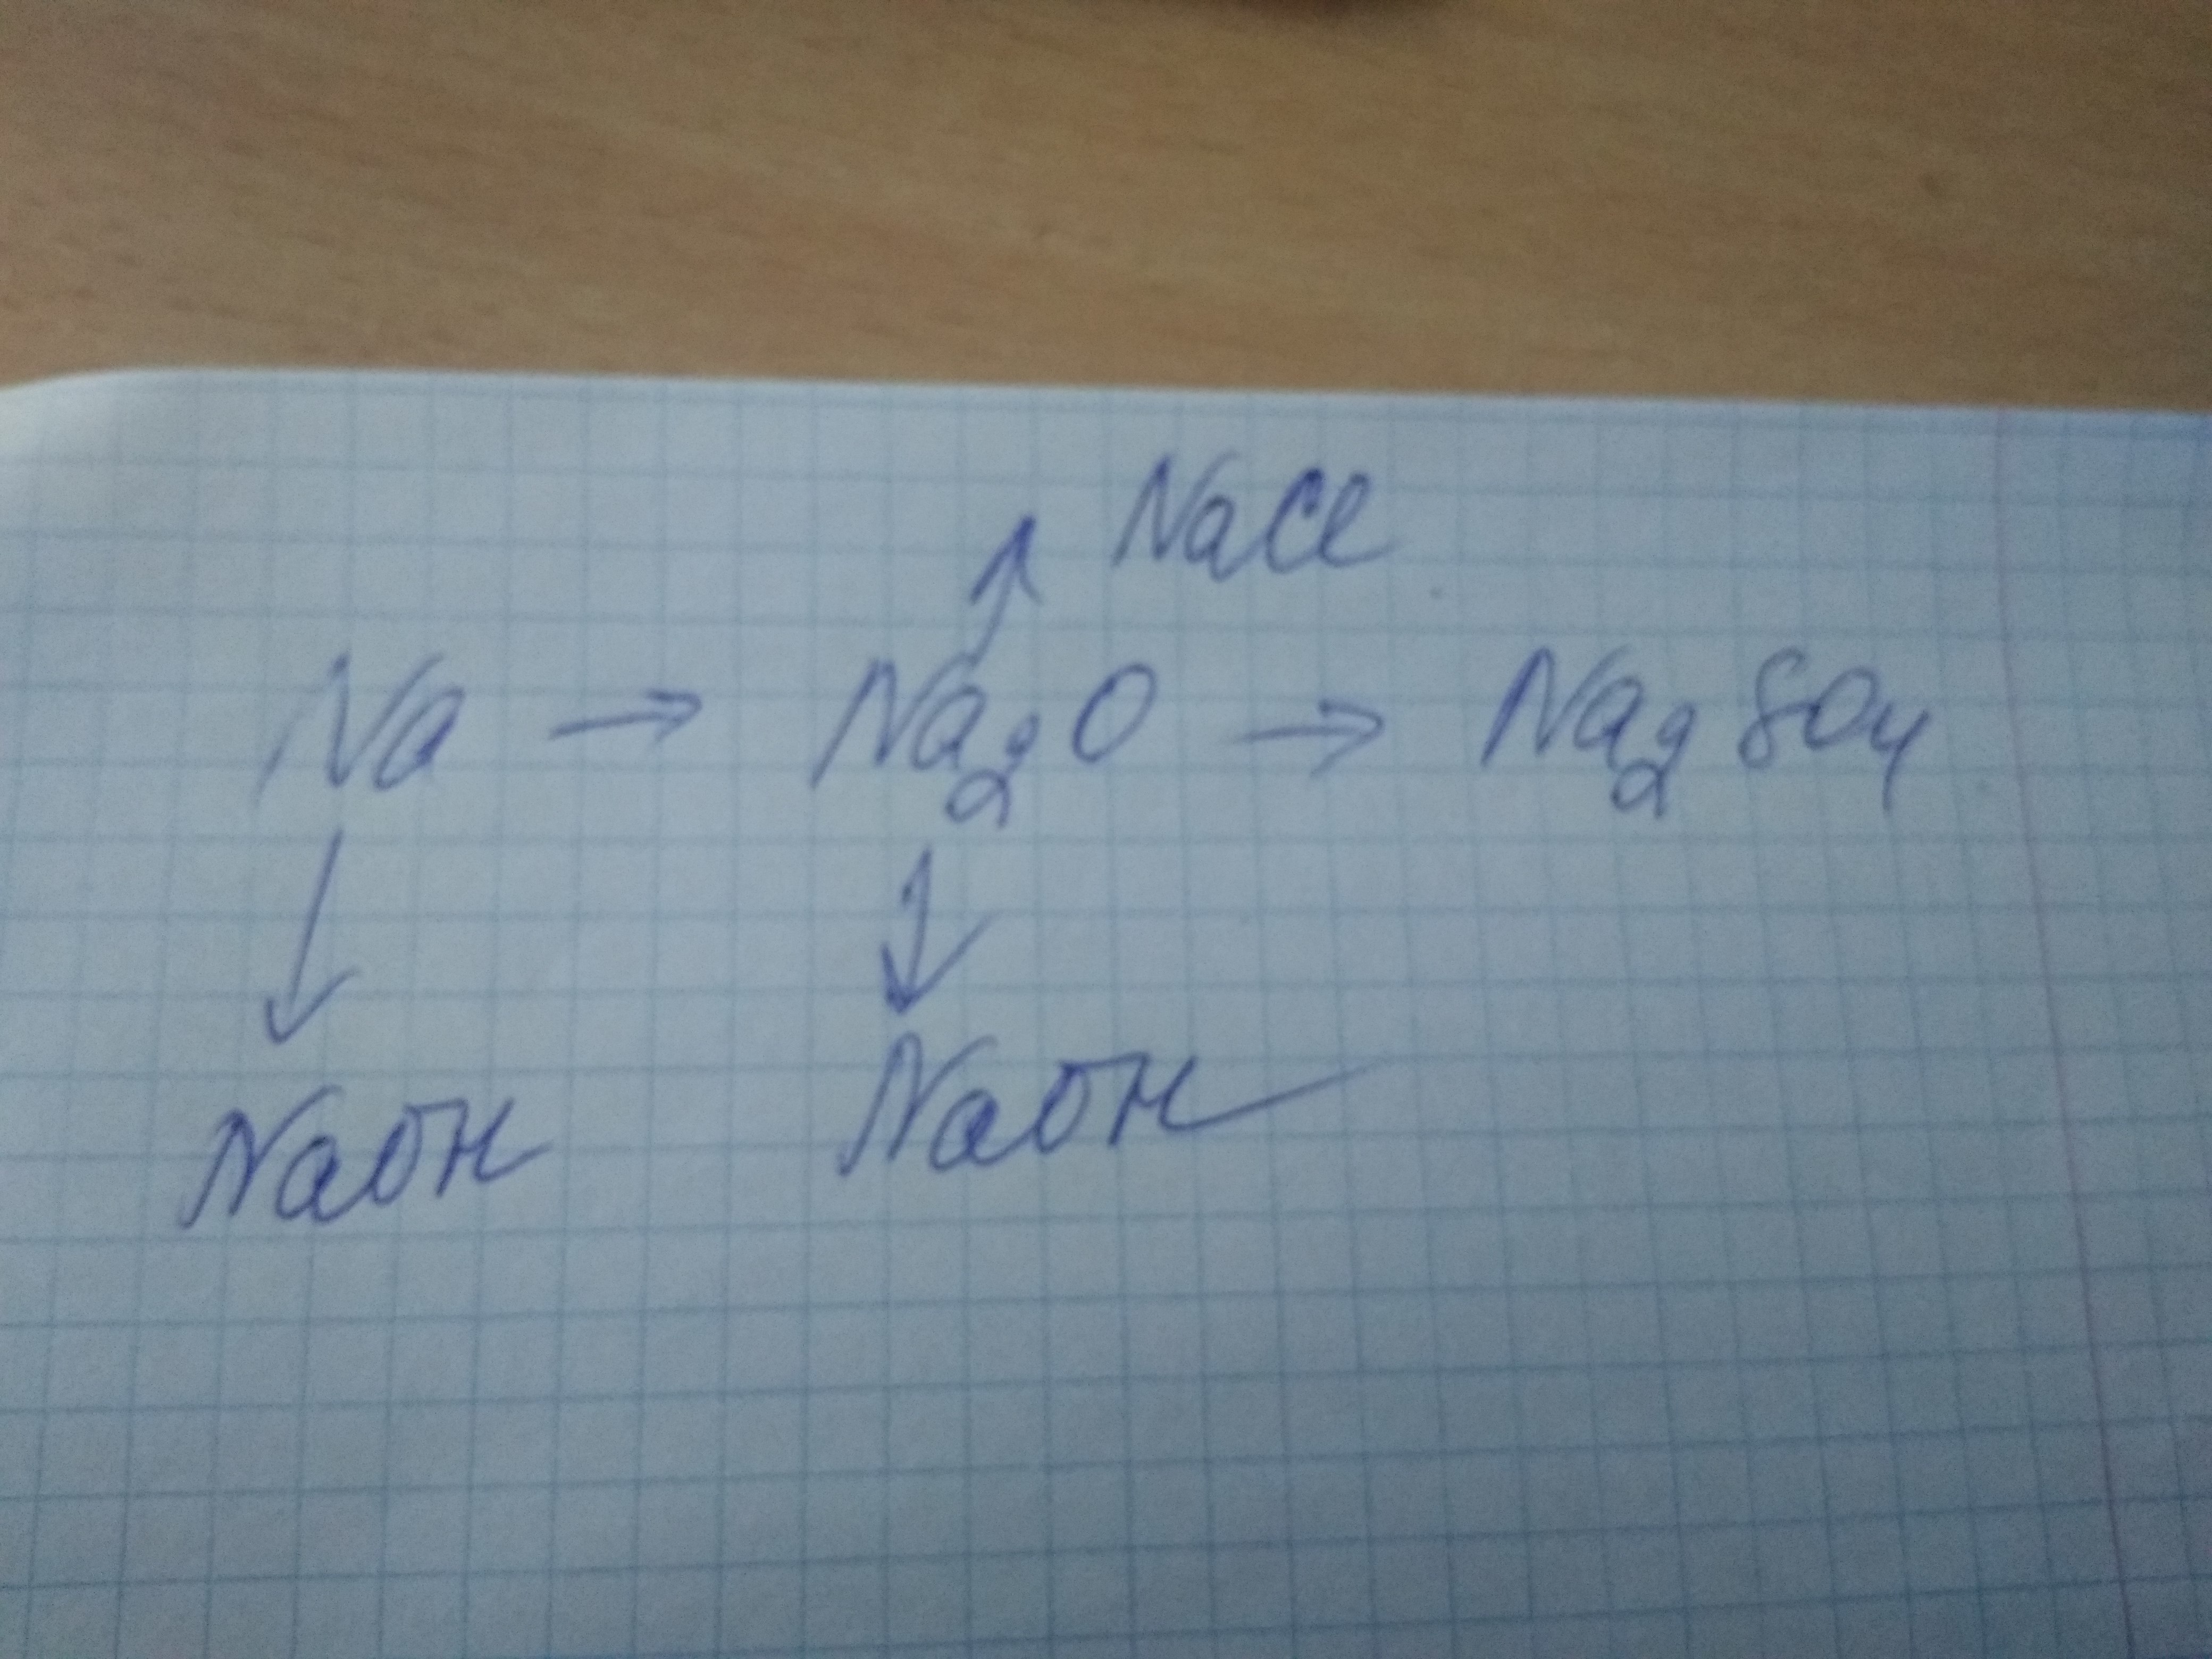 NaCl
Na → Na₂O → Na₂SO₄
NaOH NaOH